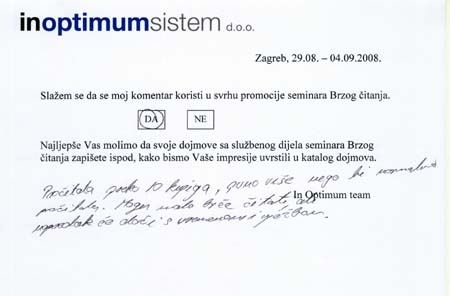 inoptimumsistem d.o.o.
Zagreb, 29.08. – 04.09.2008.
Slažem se da se moj komentar koristi u svrhu promocije seminara Brzog čitanja.
DA NE
Najljepše Vas molimo da svoje dojmove sa službenog dijela seminara Brzog
čitanja zapišete ispod, kako bismo Vaše impresije uvrstili u katalog dojmova.
Pročitala preko 10 knjiga, puno više nego bi normalno
In Optimum team
pročitala. Mogu malo brže čitati, ali
napredak će doći s vremenom i vježbom.